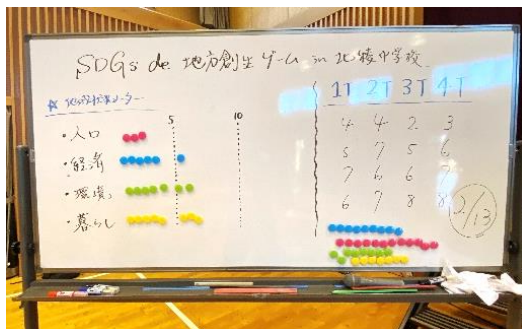 SDGs de 地方創生ゲーム in 北陵中学校
☆ 地域状況メーター
5
10
・人口
・経済
・環境
・暮らし
1T 2T 3T 4T
4 4 2 3
5 7 5 6
7 6 6 7
6 7 8 8
2/13